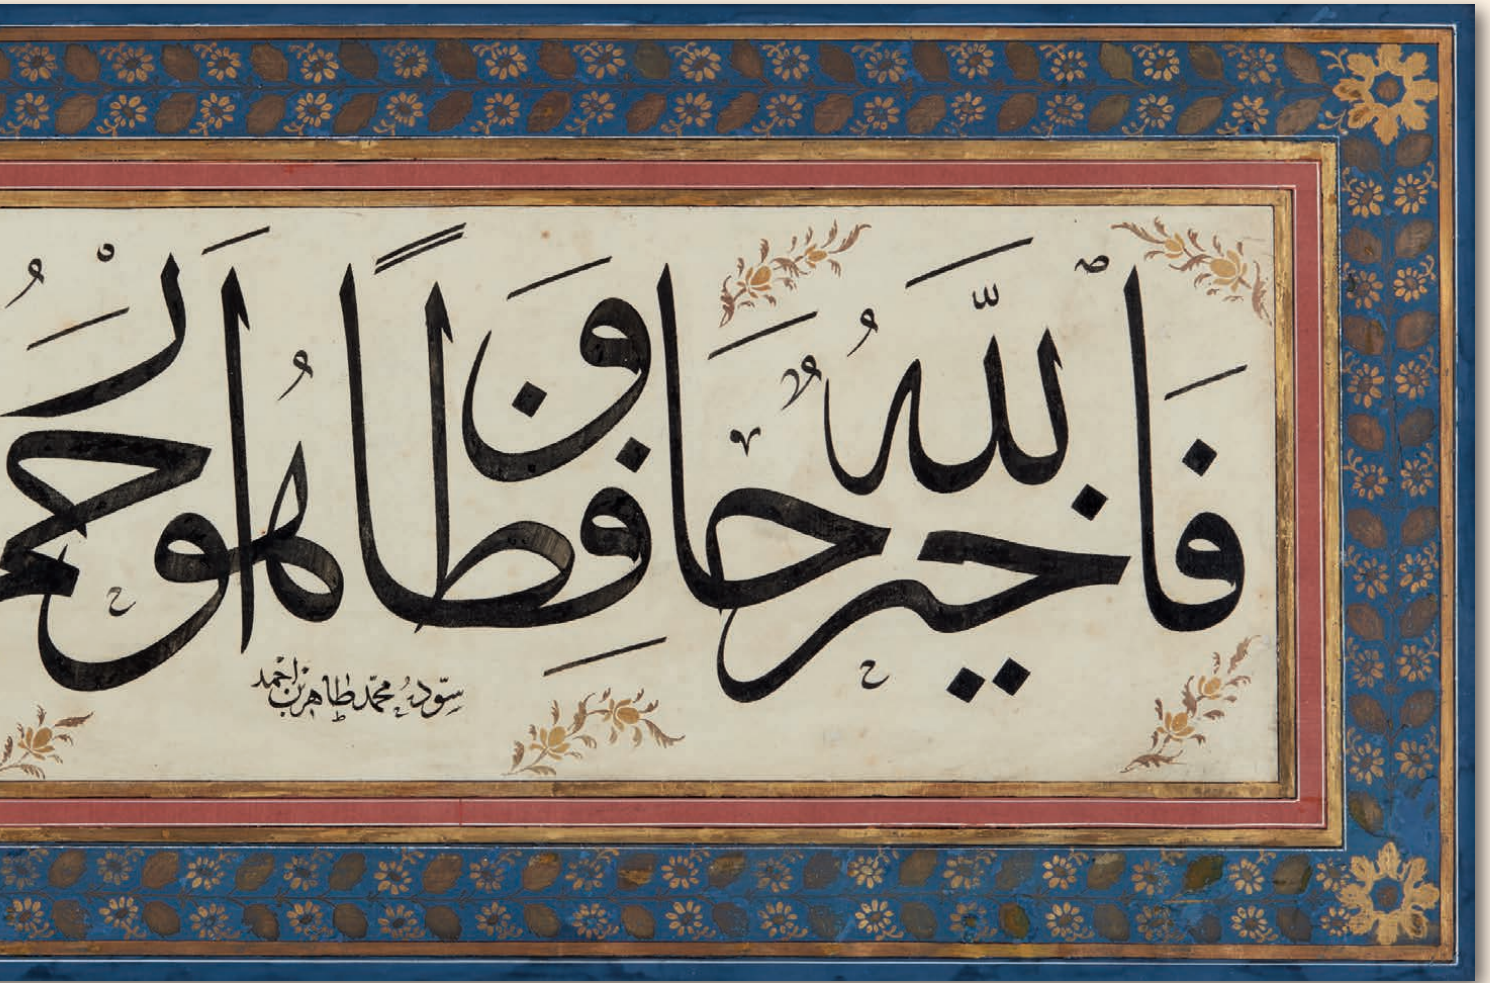 فَاللّٰهُ خَيْرٌ حَافِظًا وَهُوَ اَرْحَمُ
سوّده محمّد طاهر بن احمد